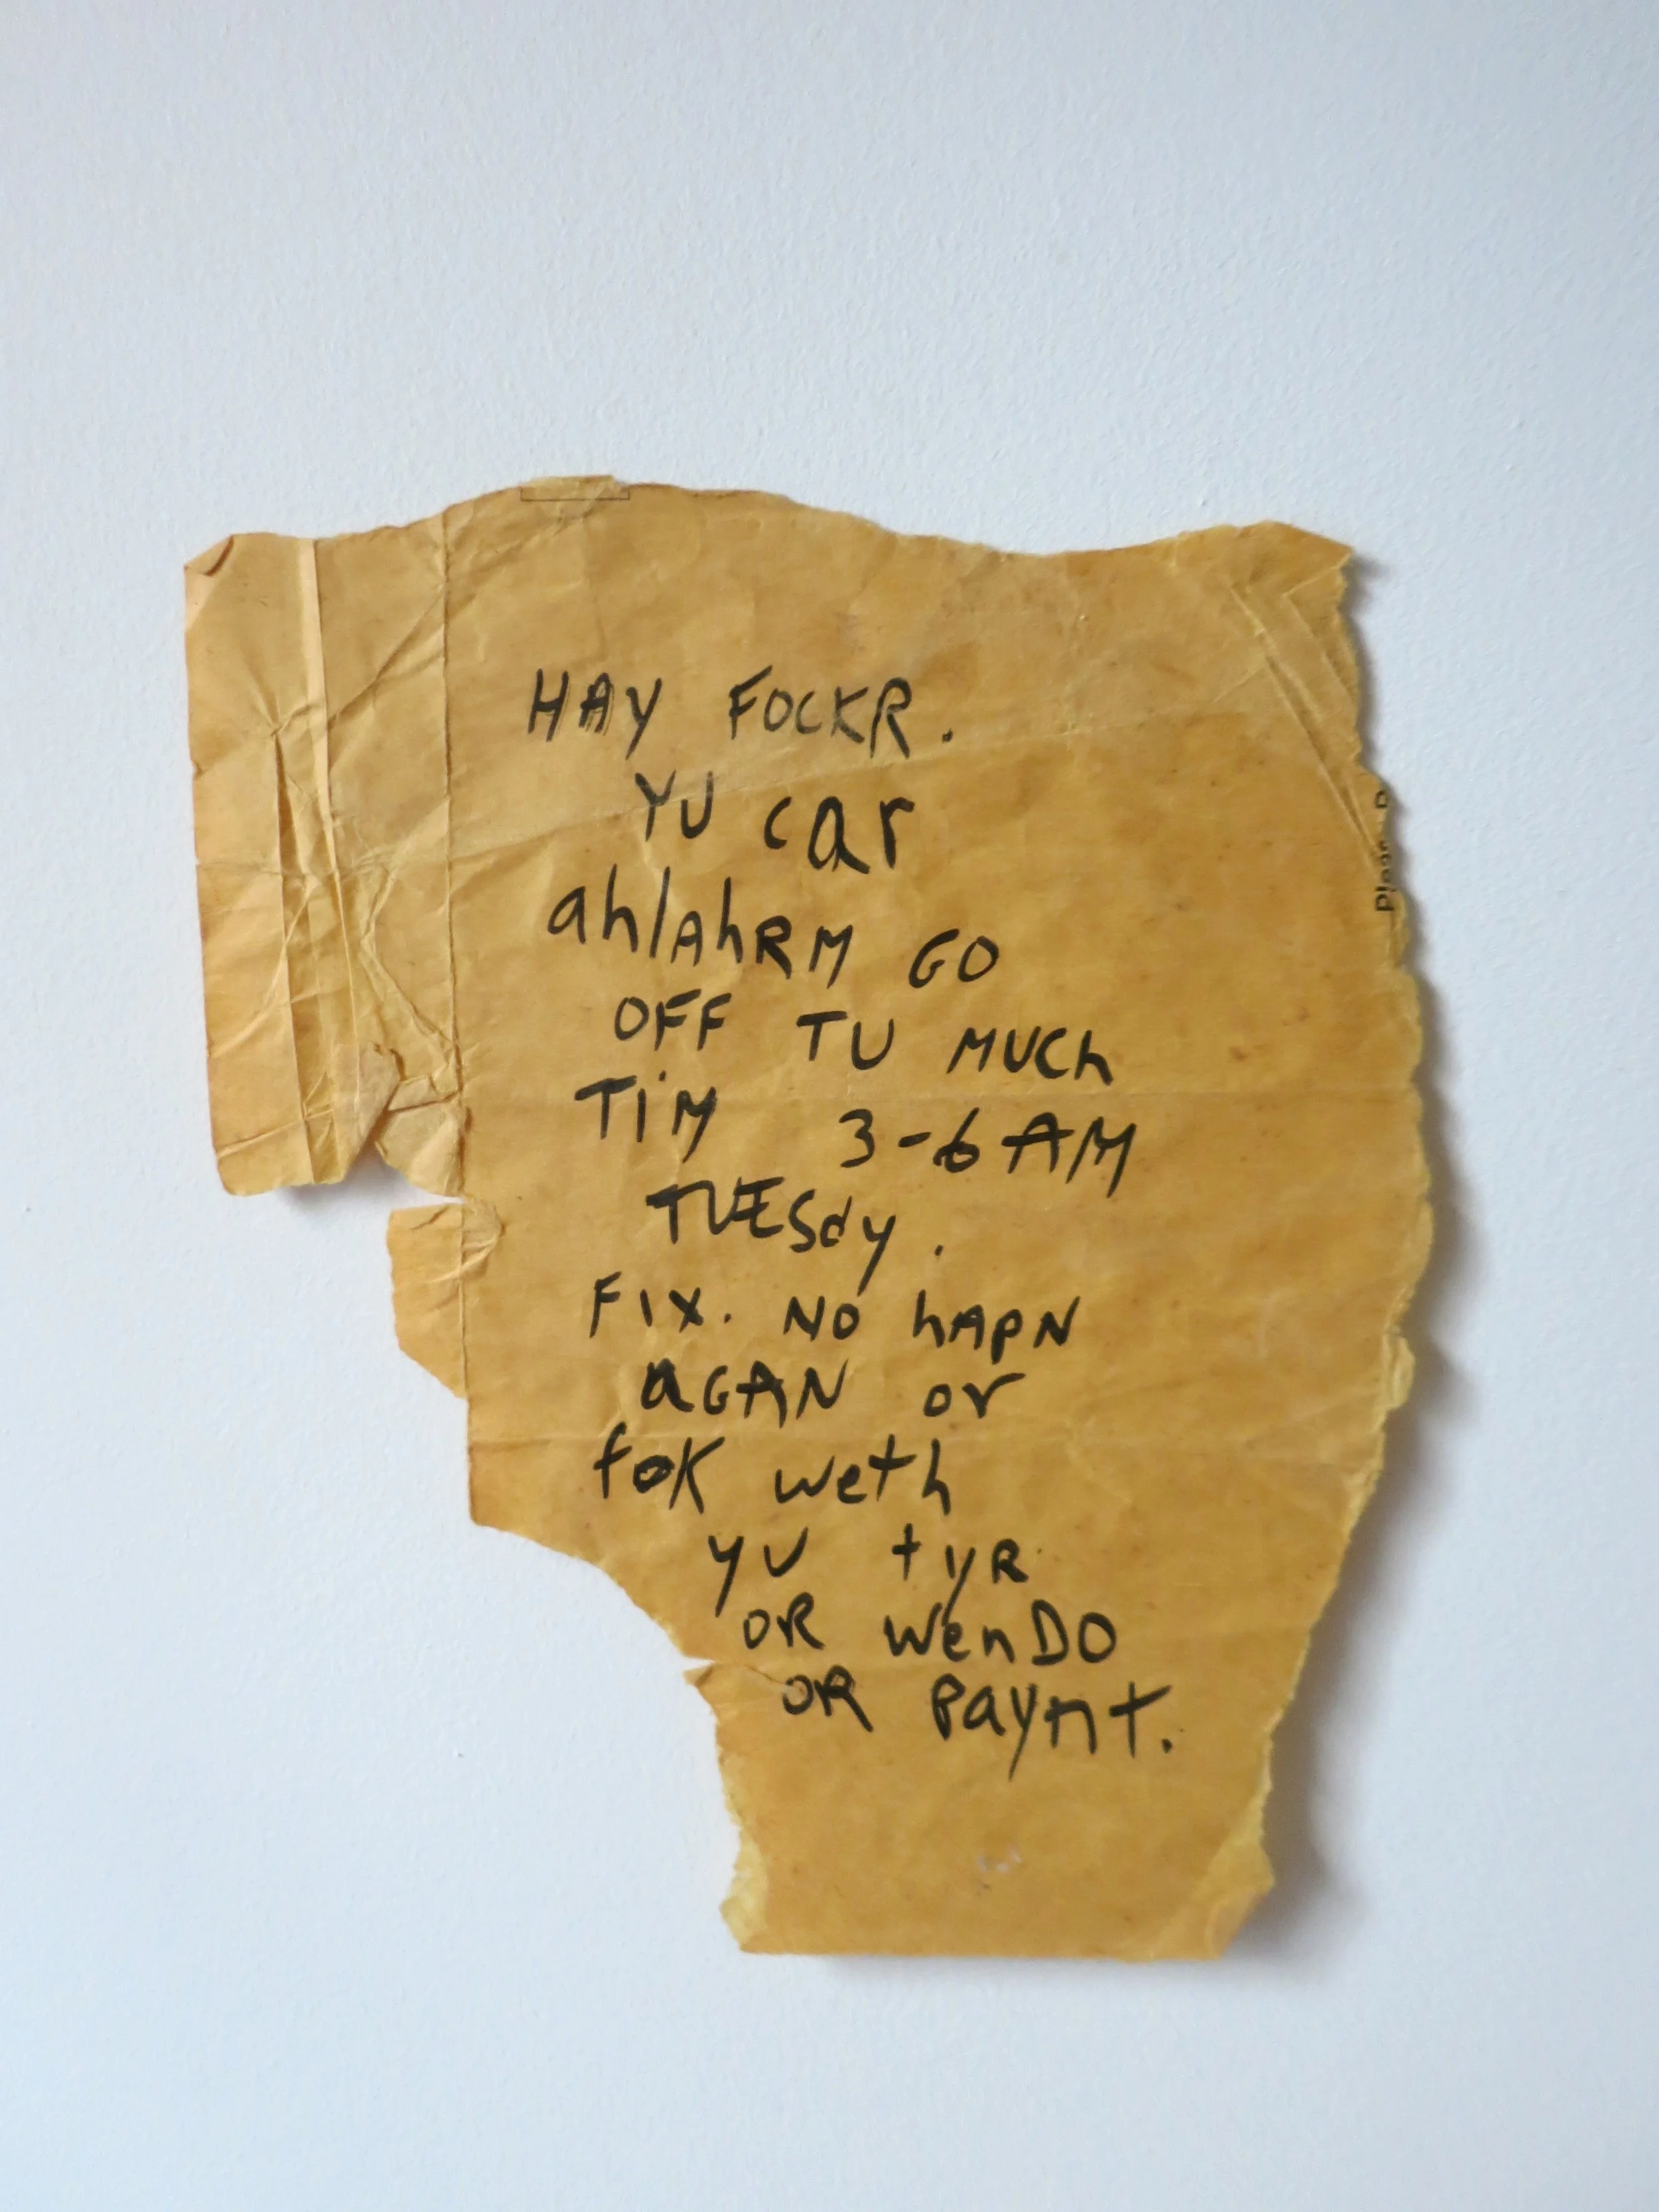 HAY FOCKR.
YU car
ahlAhRM GO
OFF TU MUCh
TiM 3-6 AM
TUESdy.
FIX. NO hAPN
aGAN or
foK weth
yu tyR
OR WenDO
OR Paynt.